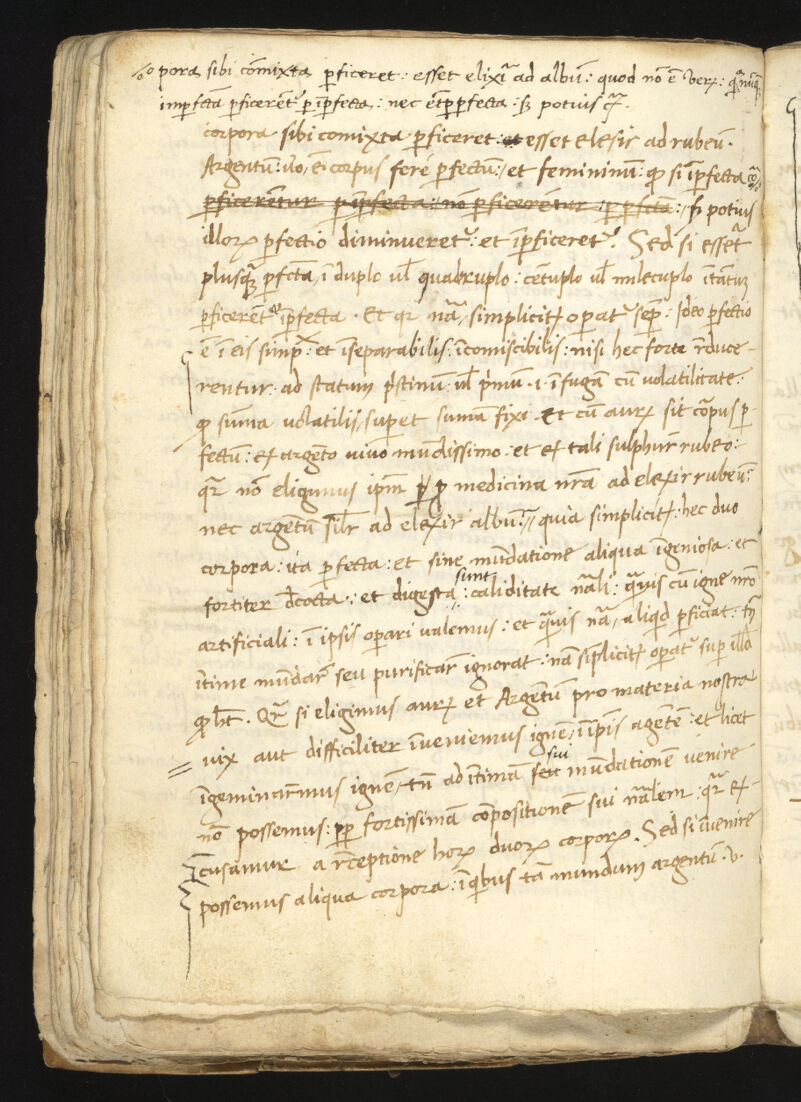 corpora sibi cōmixta ꝑficeret: esset elixir ad albū: quod nō ē verū:
imꝑfecta ꝑficerent᷑ ꝑ īꝑfecta: nec ēt ꝑ ꝑfecta: sꝫ potius
corpora sibi comixta ꝑficeret: et esset elexir ad rubeū.
Argentū: v̊o, ē corpus fere ꝑfectū: et femininū: ꝙ si īꝑfecta
ꝑficerentur ꝑ īꝑfecta: nō ꝑficerentur ꝑ ꝑfecta: sꝫ potius
illorꝫ ꝑfectio diminueret᷑: et īꝑficeret᷑. Sed si esset
plusqꝫ ꝑfcta, ī duplo ul̄ quadruplo: cētuplo ul̄ milecuplo
ꝑficerent᷑ īꝑfecta. Et qr nā, simplicit᷑ oꝑat᷑ sēꝑ: Ideo ꝑfectio
ē ī eis simp: et īseparabilis: īcomiscibilis: nisi hec forte r̄duce-
rentur: ad statum pristinū: ul̄ pimū .i. ī fugā cū uolatilitate:
ꝙ sūma uolatilis, suꝑet sūmā fixi. Et cū aurꝫ sit corpus ꝑ-
fectū: ex argēto uiuo mūdissimo: et ex tali sulphur̄ rubeo:
qr̄ nō eligimus ip̄m ꝓ medicina nr̄a ad elexir rubeū:
nec argētū sil̄r ad elexir albū: quia simplicit᷑: hec duo
corpora: ita ꝑfecta: et sine mūdatione aliqua īgeniosa: et
fortiter dcocta: et digesta sunt: caliditate nāli: quis cū igne nr̄o
artificiali: ī ipsis oꝑari ualemus: et quis nā, aliqid ꝑficiat: tn̄
ītime mūdar̄ seu purificar̄ ignorat: nā simplicit᷑ oꝑat᷑ suꝑ illo
ꝙ ht̄. Qr̄ si eligimus aurꝫ et Argentū pro materia nostra
uix aut difficiliter īueniemus ignē, ī ip̄is agētē: et licet
īgeminar̄mus ignē, tn̄ ad ītimā sui mūdationē uenire
nō possemus: ꝑꝑ fortissimā cōpositionē sui nālem: qr̄ ex-
cusamur a r̄ceptione horꝫ duorꝫ corporꝫ. Sed si īuenire
possemus aliqua corpora: ī qibus tā mundum argentū. v.